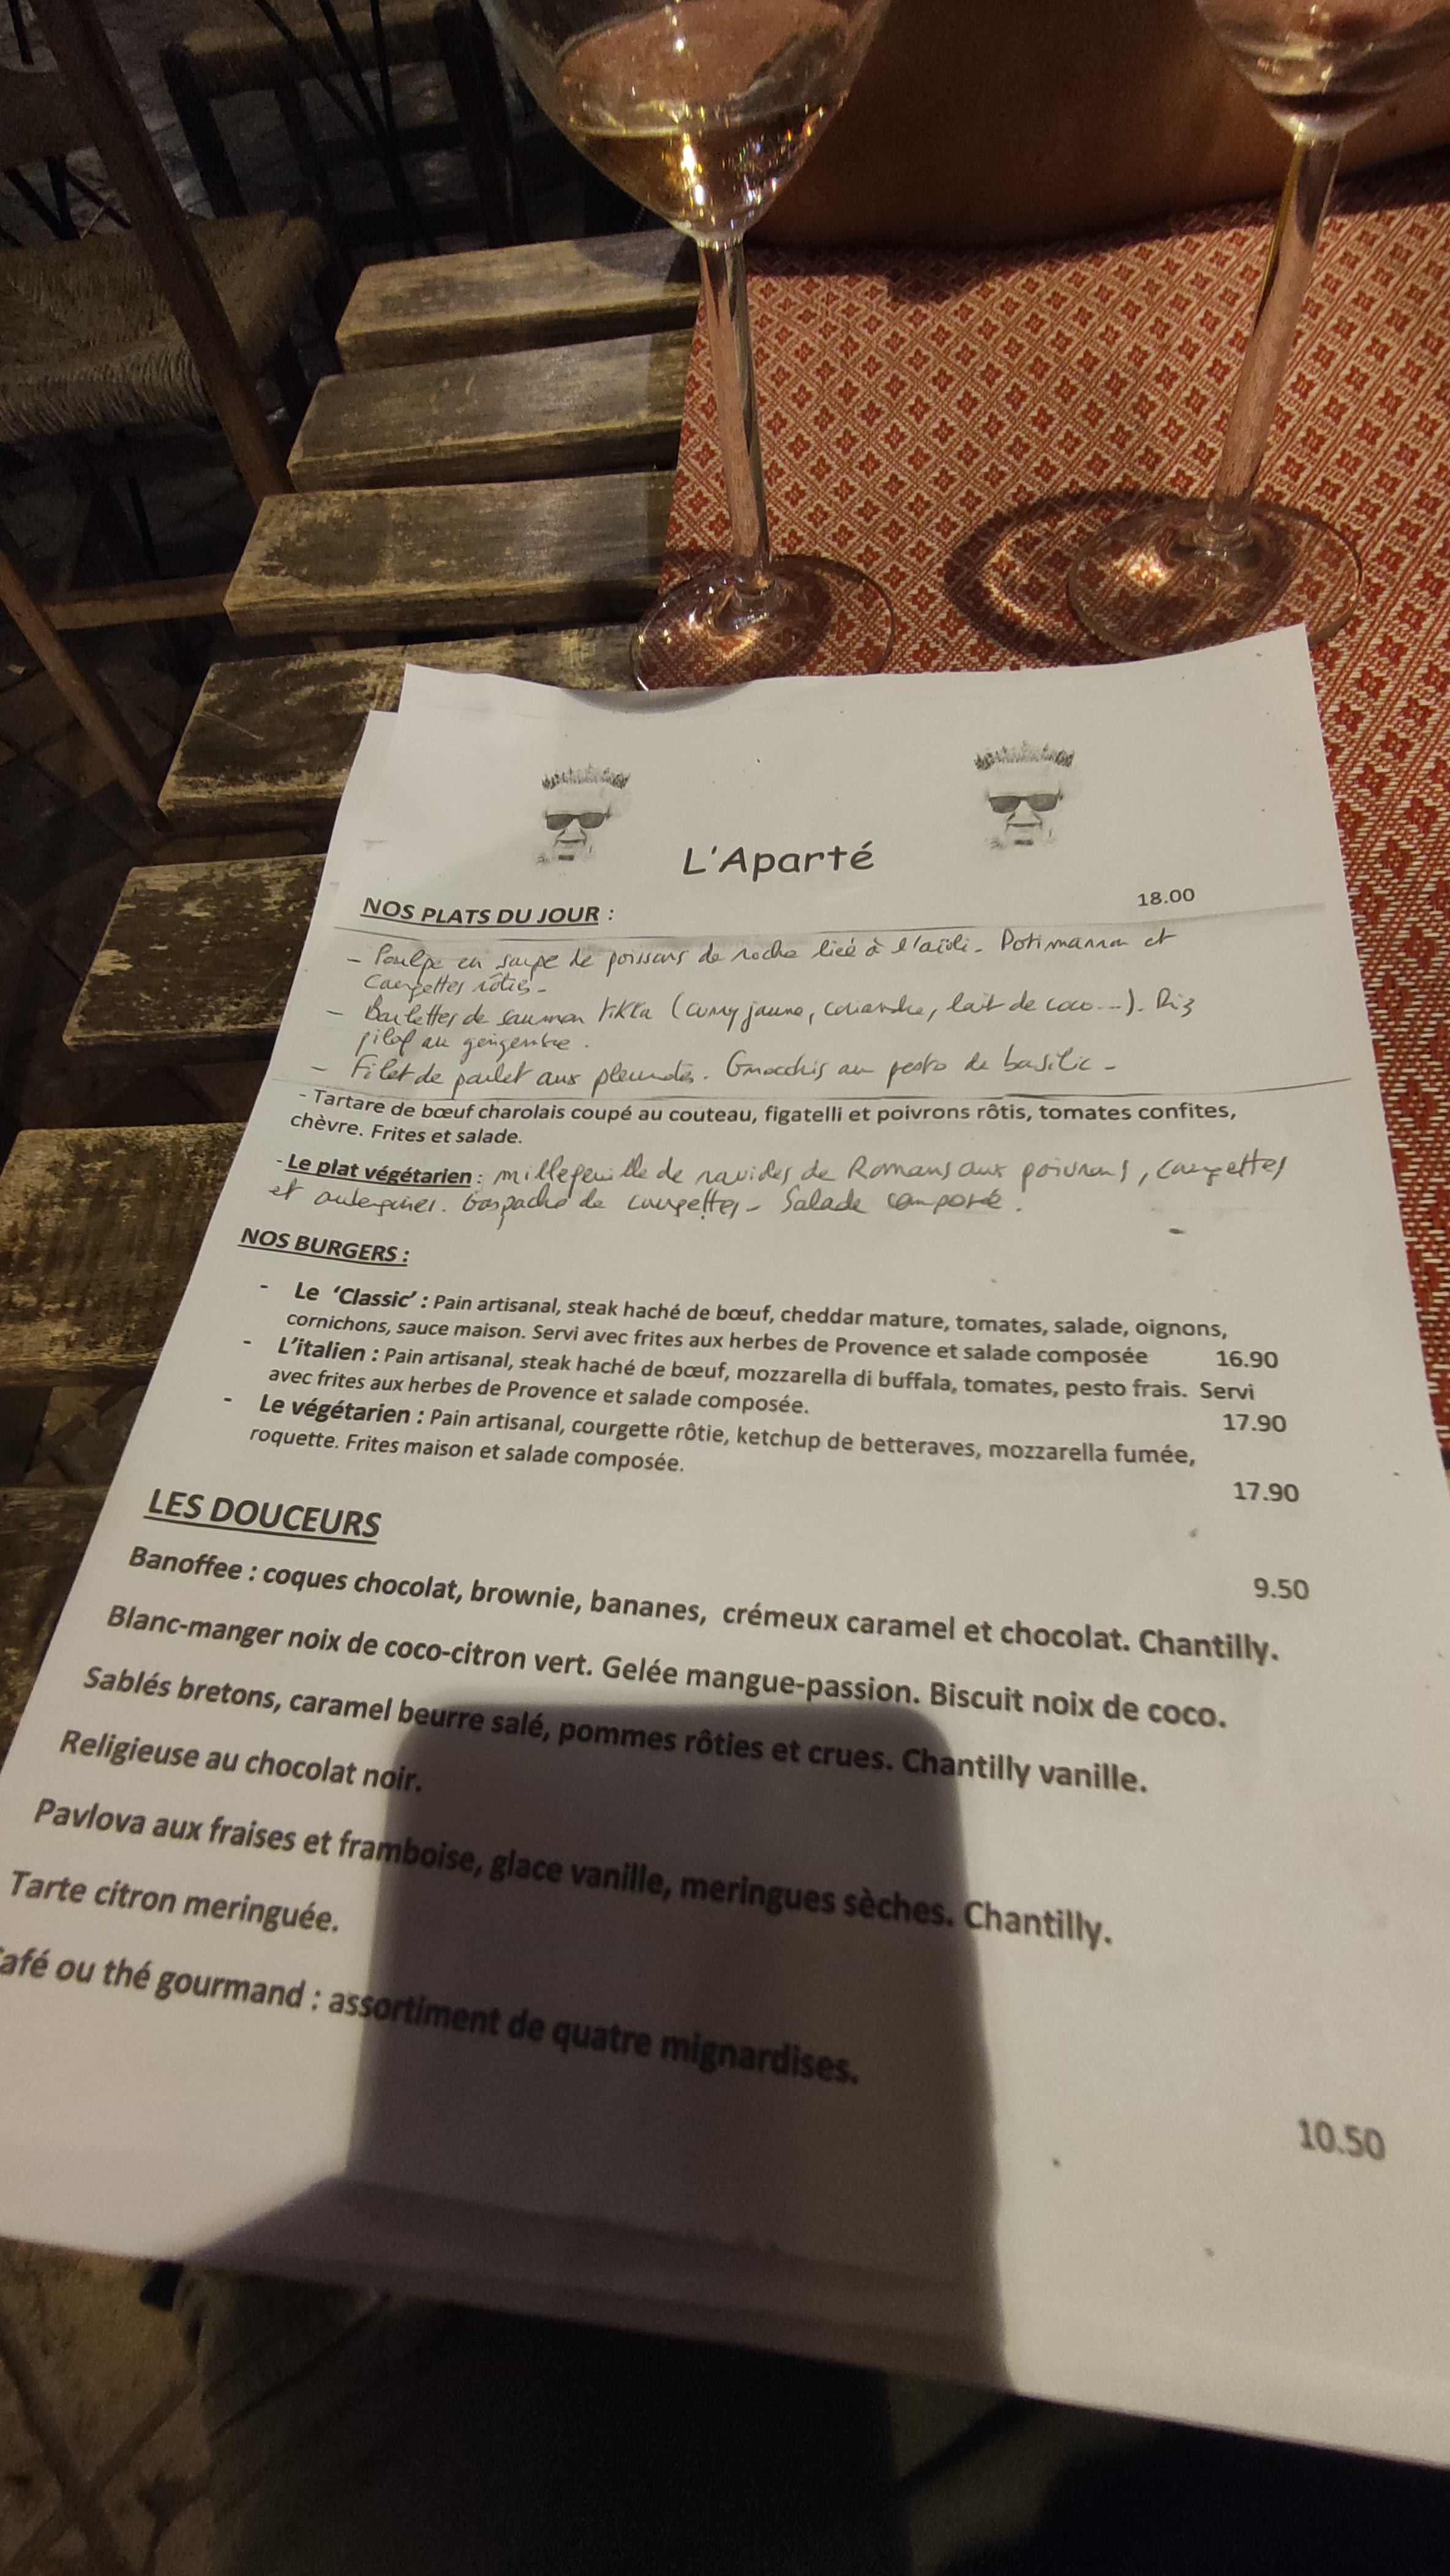 L'Aparté
NOS PLATS DU JOUR :
18.00
- Poulpe en soupe de poissons de roche lieé à l'aïoli. Potimarron et
Courgettes rôties -
- Boulettes de saumon tikka (curry jaune, coriandre, lait de coco...). Riz
pilaf au gingembre.
- Filet de poulet aux pleurotes. Gnocchis au pesto de basilic -
- Tartare de bœuf charolais coupé au couteau, figatelli et poivrons rôtis, tomates confites,
chèvre. Frites et salade.
- Le plat végétarien : millefeuille de ravioles de Romans aux poivrons, courgettes
et aubergines. Gaspacho de courgettes - Salade composée.
NOS BURGERS :
- Le 'Classic' : Pain artisanal, steak haché de bœuf, cheddar mature, tomates, salade, oignons,
cornichons, sauce maison. Servi avec frites aux herbes de Provence et salade composée 16.90
- L'italien : Pain artisanal, steak haché de bœuf, mozzarella di buffala, tomates, pesto frais. Servi
avec frites aux herbes de Provence et salade composée. 17.90
- Le végétarien : Pain artisanal, courgette rôtie, ketchup de betteraves, mozzarella fumée,
roquette. Frites maison et salade composée. 17.90
LES DOUCEURS
9.50
Banoffee : coques chocolat, brownie, bananes, crémeux caramel et chocolat. Chantilly.
Blanc-manger noix de coco-citron vert. Gelée mangue-passion. Biscuit noix de coco.
Sablés bretons, caramel beurre salé, pommes rôties et crues. Chantilly vanille.
Religieuse au chocolat noir.
Pavlova aux fraises et framboise, glace vanille, meringues sèches. Chantilly.
Tarte citron meringuée.
Café ou thé gourmand : assortiment de quatre mignardises.
10.50